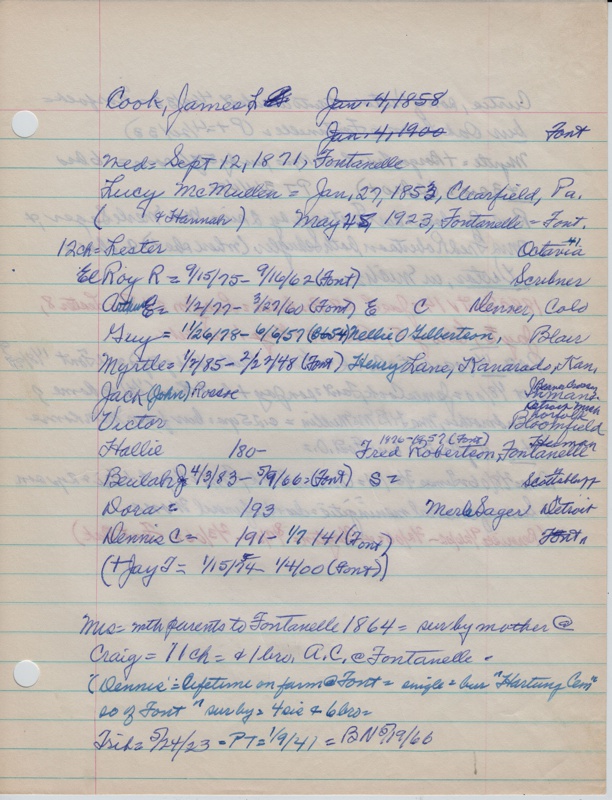 Cook, James L Jan. 4, 1858
Jan. 4, 1900 Font
Med = Sept 12, 1871, Fontanelle
Lucy McMullen = Jan, 27, 1853, Clearfield, Pa.
( & Hannah ) May 1923, Fontanelle - Font.
12 ch = Lester Octavia 41
El Roy R = 9/15/75 - 9/16/62 (Font) Scribner
E = 1/2/77 - 3/27/60 (Font) E C Denver, Colo
Guy = 11/26/78 - 6/6/57 Nellie O Gilbertson, Blair
Myrtle = 1/2/85 - 2/22/48 (Font) Henry Lane, Kanarado, Kan,
Jack (John) Roscoe Inman =
Victor Norfolk Bloomfield
Hallie 180- Fred Robertson, 1876-1957 (Font) Fontanelle
Beulah J 4/3/83 - 5/9/66 = (Font) S = Scottsbluff
Dora = 193 Merle Sager Detroit
Dennis C = 191 - 1/7/41 (Font) Font,
(+ Jay T = 1/15/74 - 1/4/00 (Font))
Mrs = with parents to Fontanelle 1864 = sur by mother @
Craig = 11 ch = & 1 bro, A.C. @ Fontanelle -
"Dennis" = lifetime on farm @ Font = single = bur "Hartung Cem"
so of Font" sur by = 4 sis & 6 bro =
Trib = 5/24/23 = PT = 1/9/41 = BN 5/19/66